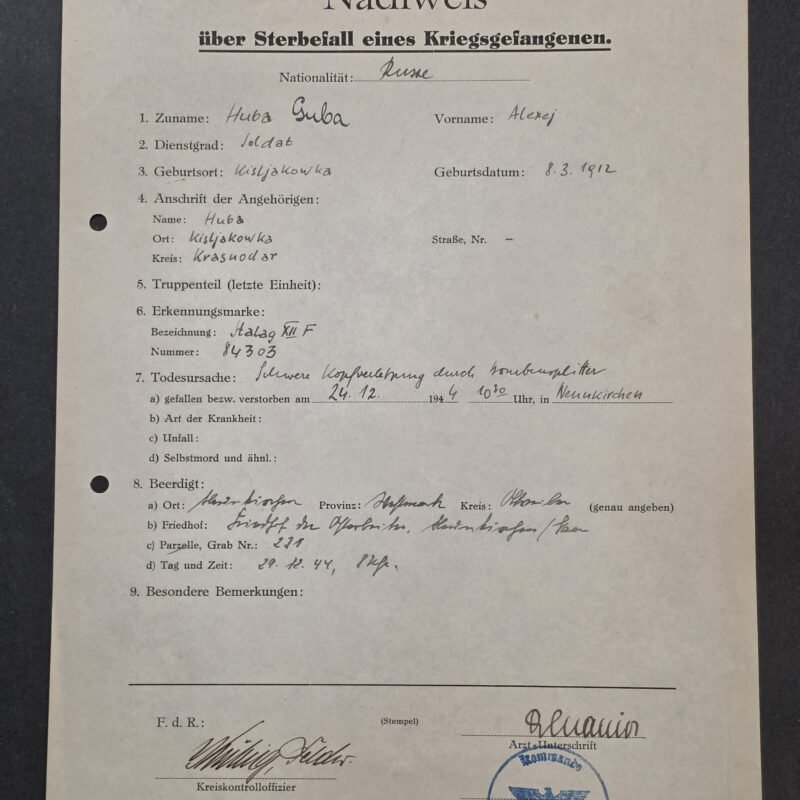 Nachweis
über Sterbefall eines Kriegsgefangenen.
Nationalität: Russe
1. Zuname: Huba Guba Vorname: Alexej
2. Dienstgrad: Soldat
3. Geburtsort: Kisljakowka Geburtsdatum: 8.3.1912
4. Anschrift der Angehörigen:
Name: Huba
Ort: Kisljakowka Straße, Nr. –
Kreis: Krasnodar
5. Truppenteil (letzte Einheit):
6. Erkennungsmarke:
Bezeichnung: Stalag XII F
Nummer: 84303
7. Todesursache: Schwere Kopfverletzung durch Bombensplitter
a) gefallen bezw. verstorben am 24.12. 1944 10³⁰ Uhr, in Neunkirchen
b) Art der Krankheit:
c) Unfall:
d) Selbstmord und ähnl.:
8. Beerdigt:
a) Ort: Neunkirchen Provinz: Westmark Kreis: Ottweiler (genau angeben)
b) Friedhof: Friedhof der Ostarbeiter, Neunkirchen/Saar
c) Parzelle, Grab Nr.: 231
d) Tag und Zeit: 29.12.44, 8 Uhr.
9. Besondere Bemerkungen:
F. d. R.: (Stempel)
Arzt-Unterschrift
Kreiskontrolloffizier
Kommando